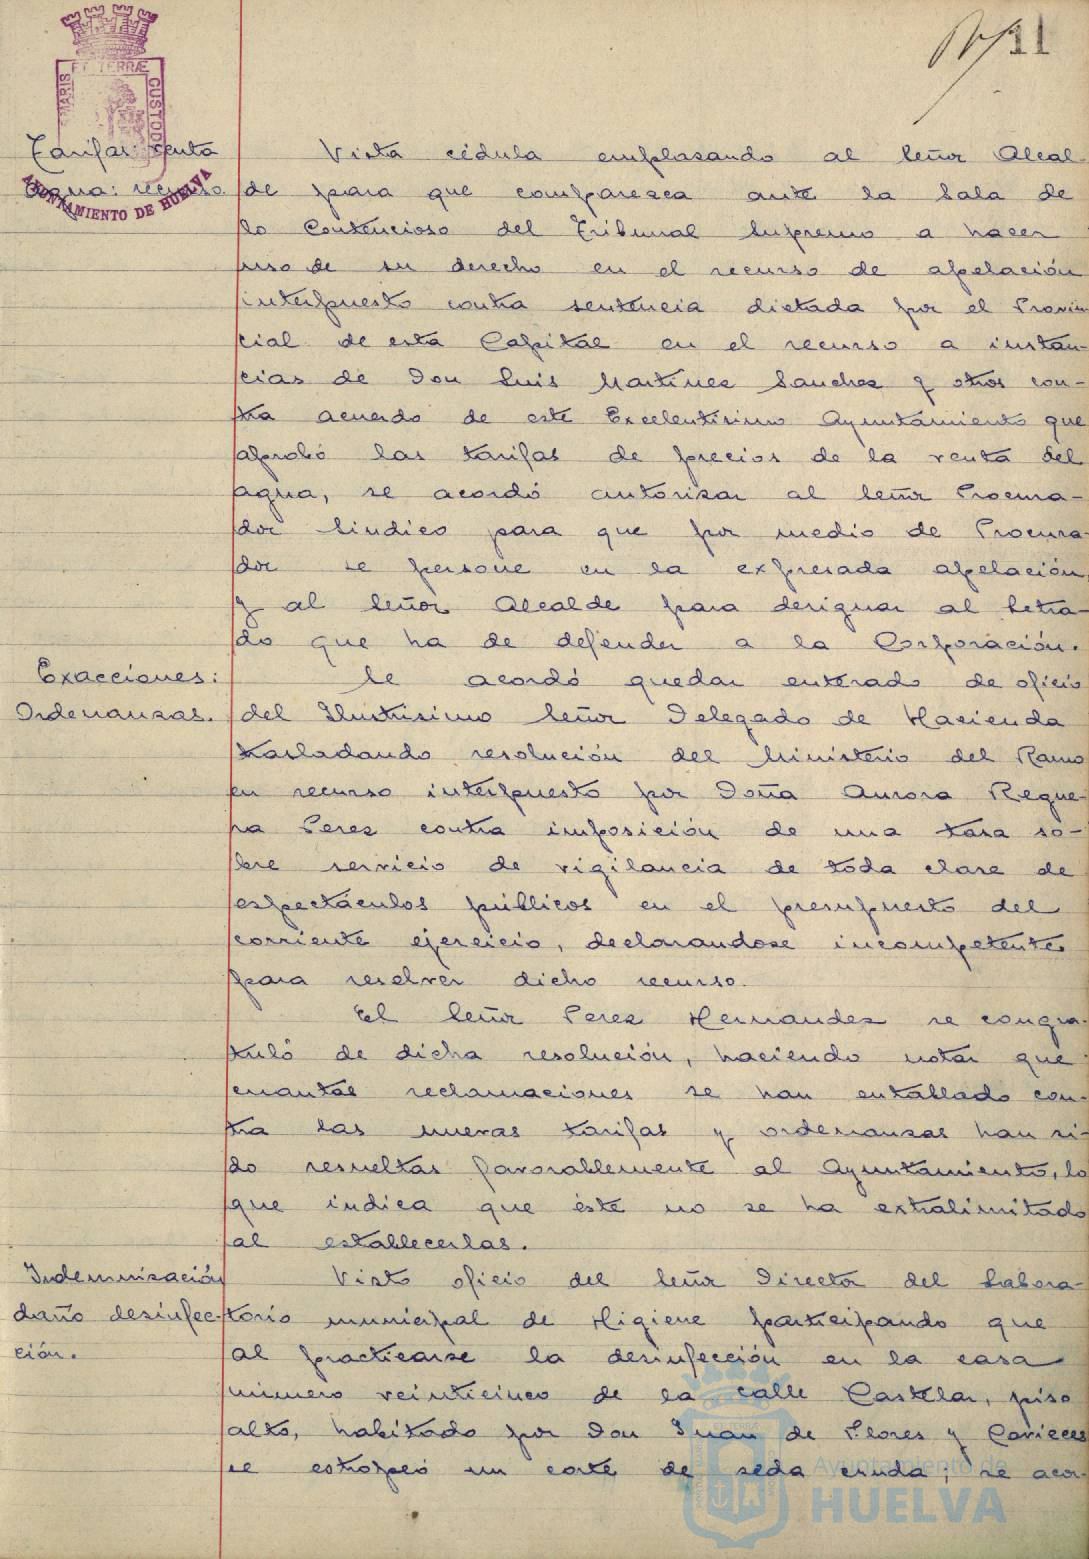 11
MARIS ET TERRÆ CUSTODI
AYUNTAMIENTO DE HUELVA
Tarifas renta
agua: recurso
Vista cédula emplasando al Señor Alcal-
de para que comparesca ante la Sala de
lo Contencioso del Tribunal Supremo a hacer
uso de su derecho en el recurso de apelación
interpuesto contra sentencia dictada por el Provin-
cial de esta Capital en el recurso a instan-
cias de Don Luis Martines Sanches y otros con-
tra acuerdo de este Excelentisimo Ayuntamiento que
aprobó las tarifas de precios de la renta del
agua, se acordó autorisar al Señor Procura-
dor Sindico para que por medio de Procura-
dor se persone en la expresada apelación,
y al Señor Alcalde para designar al Letra-
do que ha de defender a la Corporación.
Exacciones:
Ordenansas.
Se acordó quedar enterado de oficio
del Ilustrisimo Señor Delegado de Hacienda
trasladando resolución del Ministerio del Ramo
en recurso interpuesto por Doña Aurora Reque-
na Peres contra imposición de una tasa so-
bre servicio de vigilancia de toda clase de
espectáculos públicos en el presupuesto del
corriente ejercicio, declarandose incompetente
para resolver dicho recurso.
El Señor Peres Hernandes se congra-
tuló de dicha resolución, haciendo notar que
cuantas reclamaciones se han entablado con-
tra las nuevas tarifas y ordenansas han si-
do resueltas favorablemente al Ayuntamiento, lo
que indica que éste no se ha extralimitado
al establecerlas.
Indemnisación
daño desinfec-
ción.
Visto oficio del Señor Director del Labora-
torio municipal de Higiene participando que
al practicarse la desinfección en la casa
número veinticinco de la calle Castelar, piso
alto, habitado por Don Juan de Flores y
se estropeó un corte de seda cruda; se acor-
Ayuntamiento de
HUELVA